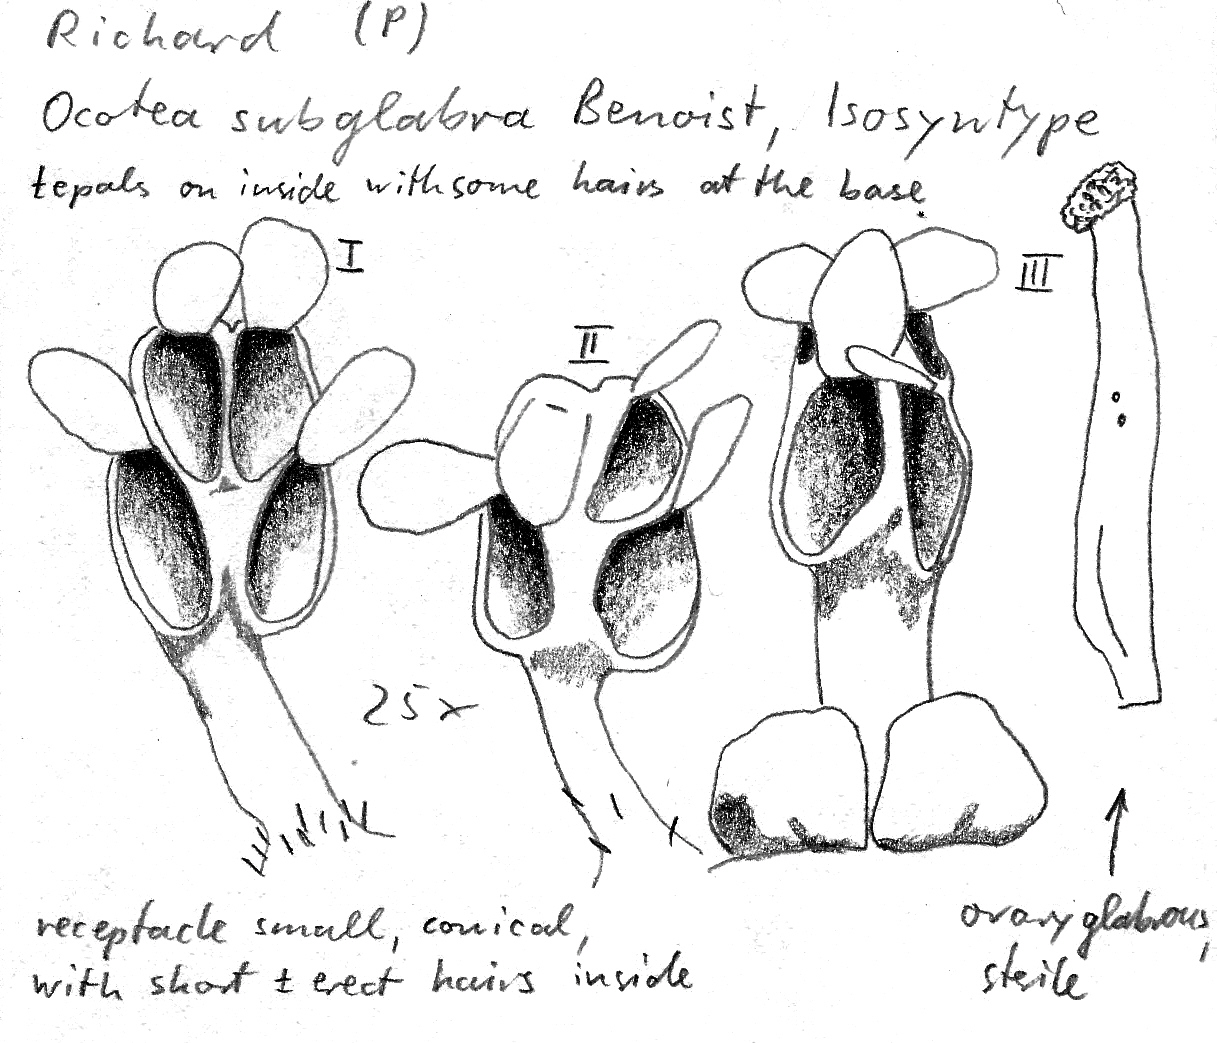 Richard (P)
Ocotea subglabra Benoist, Isosyntype
tepals on inside with some hairs at the base
I
II
III
25x
receptacle small, conical,
with short ± erect hairs inside
ovary glabrous,
sterile